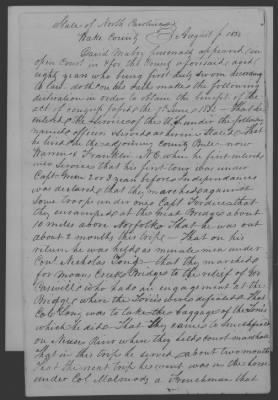 State of North Carolina
Wake County } August 1832
David Mabry personally appeared in
open Court in & for the County aforesaid, aged
eighty years who being first duly sworn according
to law doth on his oath makes the following
declaration in order to obtain the benefit of the
act of congress passed the 7 June 1832 That he
entered the service of the U.S. under the following
named officers & served as herein stated That
he lived in the adjoining county Bute now
Warren & Franklin N.C. when he first entered
the service that his first tour was under
Capt Green 2 or 3 years before Independence
was declared that they marched against
some troops under one Capt Fordice that
they encamped at the Great Bridges about
10 miles above Norfolk That he was out
about 2 months this trip That on his
return he was kept as minute man under
Col Nicholas Long that they marched
for Moors Creek Bridges to the relief of Gen
Caswell who had an engagement at the
Bridge where the Tories were defeated That
Col Long was to take the baggage of the Tories
which he did That they came to Smithfield
on Neuse River when they held court martial
That in this trip he served about two months
That the next trip he went was in the horse
under Col Malmody a Frenchman that